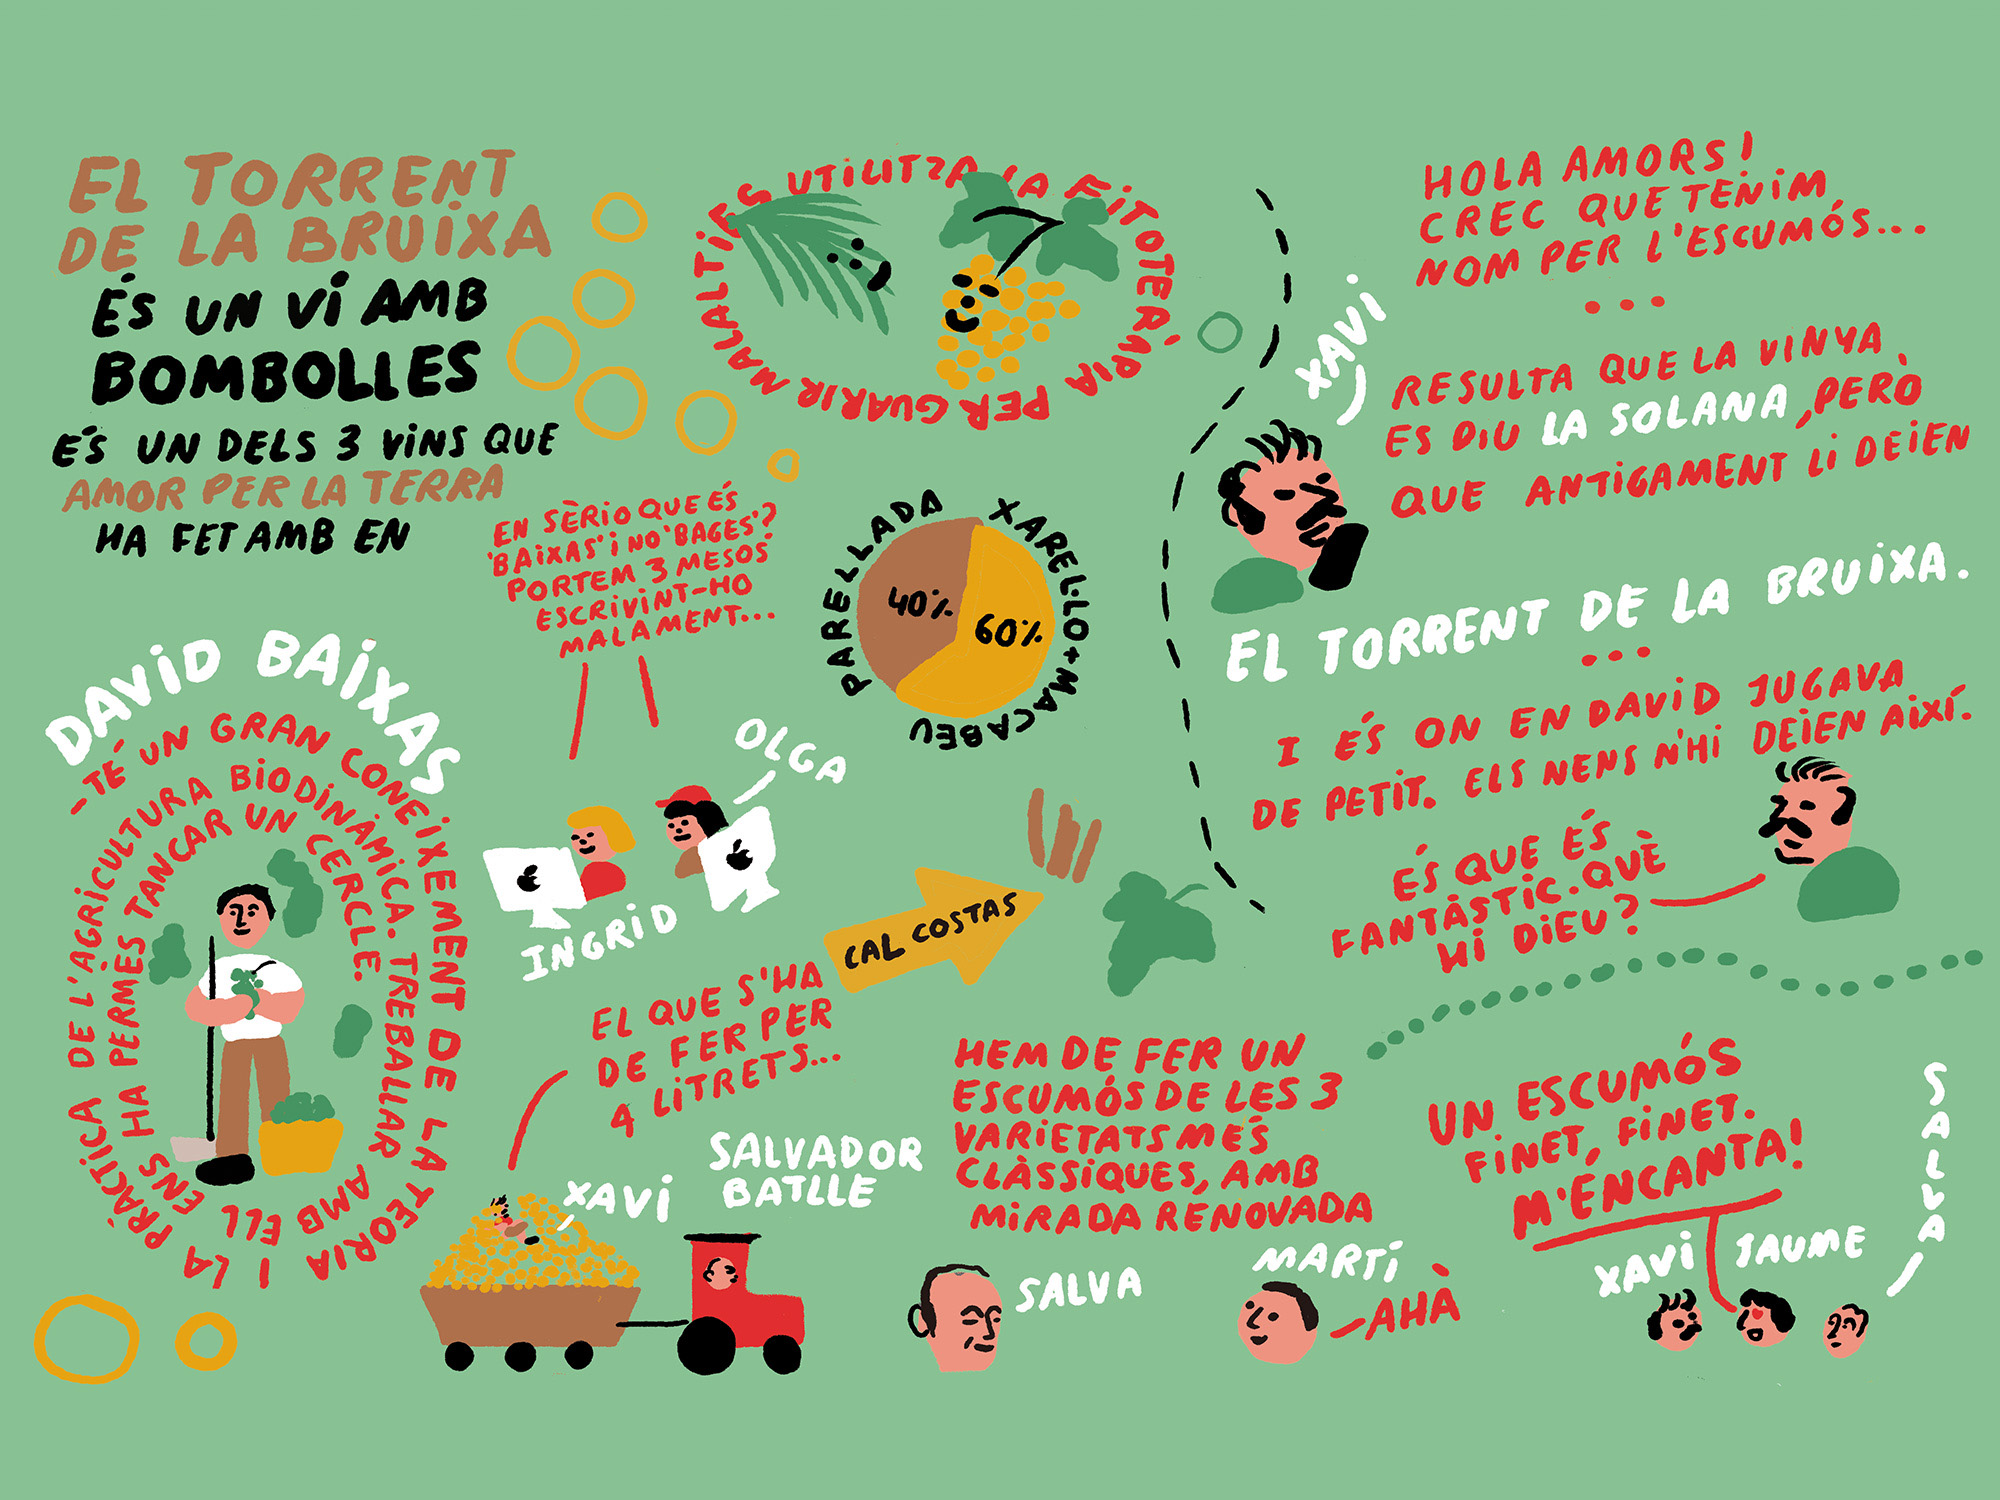 EL TORRENT
DE LA BRUIXA
ÉS UN VI AMB
BOMBOLLES
ÉS UN DELS 3 VINS QUE
AMOR PER LA TERRA
HA FET AMB EN
DAVID BAIXAS
-TÉ UN GRAN CONEIXEMENT DE LA TEORIA I LA PRÀCTICA DE L'AGRICULTURA BIODINÀMICA. TREBALLAR AMB ELL ENS HA PERMÈS TANCAR UN CERCLE.
UTILITZA LA FITOTERÀPIA PER GUARIR MALALTIES
EN SÈRIO QUE ÉS
'BAIXAS' I NO 'BAGES'?
PORTEM 3 MESOS
ESCRIVINT-HO
MALAMENT...
OLGA
INGRID
PARELLADA
40%
XAREL·LO + MACABEU
60%
CAL COSTAS
EL QUE S'HA
DE FER PER
4 LITRETS...
XAVI
SALVADOR
BATLLE
HEM DE FER UN
ESCUMÓS DE LES 3
VARIETATS MÉS
CLÀSSIQUES, AMB
MIRADA RENOVADA
SALVA
MARTI
-AHÀ
HOLA AMORS!
CREC QUE TENIM
NOM PER L'ESCUMÓS...
...
XAVI
RESULTA QUE LA VINYA
ES DIU LA SOLANA, PERÒ
QUE ANTIGAMENT LI DEIEN
EL TORRENT DE LA BRUIXA.
...
I ÉS ON EN DAVID JUGAVA
DE PETIT. ELS NENS N'HI DEIEN AIXÍ.
ÉS QUE ÉS
FANTÀSTIC. QUÈ
HI DIEU?
UN ESCUMÓS
FINET, FINET.
M'ENCANTA!
XAVI
JAUME
SALVA